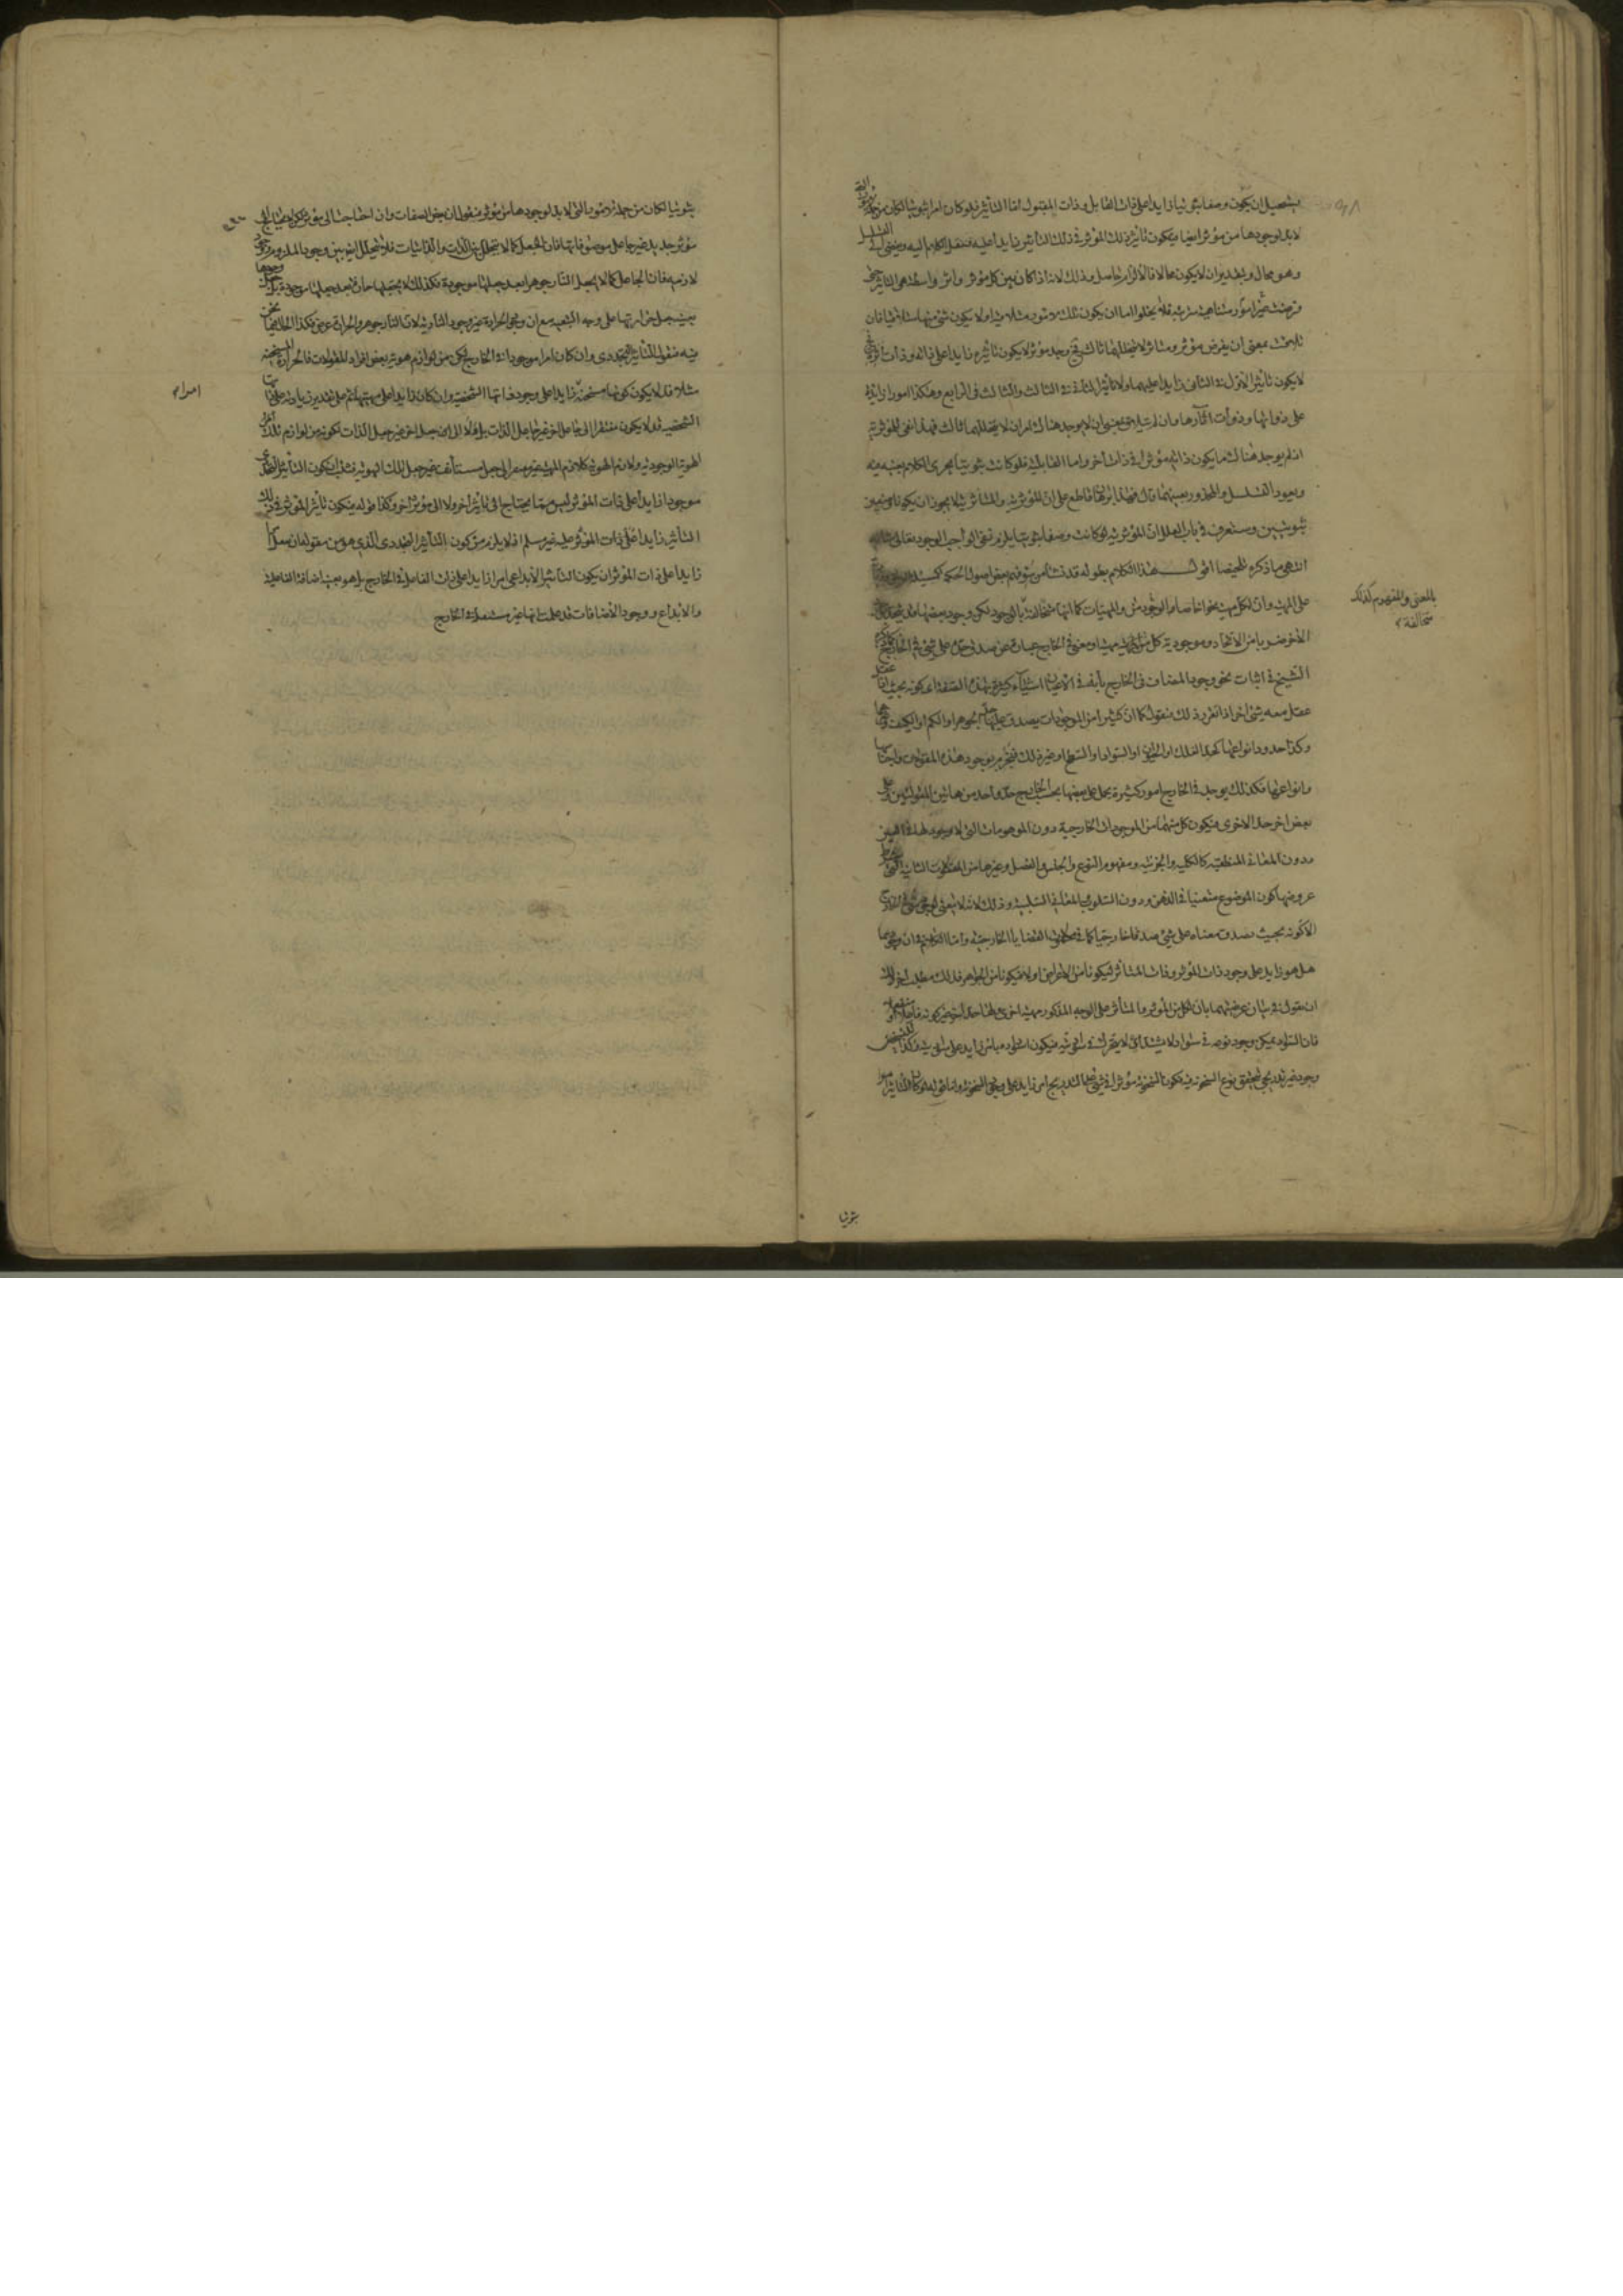 يستحيل ان يكون وصفا ثبوتيا زايدا على ذات القابل وذات المقبول اما التأثير فلو كان امرا ثبوتيا لكان من جملة الامور التى
لابد لوجودها من مؤثر ايضا فيكون تأثير ذلك المؤثر فى ذلك التأثير زايدا عليه فننقل الكلام اليه ويفضى الى التسلسل
وهو محال وبتقدير ان لا يكون محالا فالالزام حاصل وذلك لانه اذا كان بين كل مؤثر واثر واسطة هى التأثير حتى
فرضت هيهنا امور متناهية مترتبة فلا يخلوا اما ان يكون تلك الامور متلاقية او لا يكون شئ منها متلاقيا فان
تلاقت بمعنى ان يفرض مؤثر ومتأثر لا يتخللهما ثالث فح وجد مؤثر لا يكون تأثيره زايدا على ذاته وذات اثره
لا يكون تأثير الاول فى الثانى زايدا عليهما ولا تأثير الثانى فى الثالث والثالث فى الرابع وهكذا امورا زايدة
على ذواتها وذوات آثارها وان لم تتلاق بمعنى ان لا يوجد هناك امران لا يتخللهما ثالث فهذا نفى للمؤثرية
اذ لم يوجد هناك ما يكون ذاته مؤثرا فى ذات اخر واما القابلية فلو كانت ثبوتية لجرى الكلام بعينه فيه
ويعود التسلسل والمحذور بعينهما قال فهذا برهان قاطع على ان المؤثرية والمتأثرية لا يجوز ان يكونا وصفين
ثبوتيين وستعرف فى باب العلل ان المؤثرية لو كانت وصفا ثبوتيا يلزم نفى الواجب الوجود تعالى
انتهى ما ذكره تلخيصا اقول هذا الكلام بطوله قد نشأ من سوء فهم بعض اصول الحكمة
على المهية وان لكل مهية نحوا خاصا من الوجود والمهيات كما انها متخالفة بالوجود لكن وجود بعضها قد يتحد
الاخر ضربا من الاتحاد وموجودية كل مهية ومعنى فى الخارج عبارة عن صدق حده على شئ فى الخارج كما ذكره
الشيخ فى اثبات نحو وجود المضاف فى الخارج بأنه فى الاعيان اشياء كثيرة بهذه الصفة اعنى كونه بحيث اذا عقل
عقل معه شئ اخر اذا تقرر ذلك فنقول كما ان كثيرا من الموجودات يصدق عليها حد الجوهر او الكم او الكيف
وكذا حدود انواعها كحد الفلك او الحيوان او السواد او السطح او غير ذلك فيجزم بوجود هذه المقولات واجناسها
وانواعها فكذلك يوجد فى الخارج امور كثيرة يحمل على بعضها بحسب الخارج حد واحد من هاتين المقولتين وعلى
بعض اخر حد الاخرى فيكون كل منهما من الموجودات الخارجية دون الموهومات التى لا وجود لها فى العين
ودون المعانى المنطقية كالكلية والجزئية ومفهوم النوع والجنس والفصل وغيرها من المعقولات الثانية التى شرط
عروضها كون الموضوع متعينا فى الذهن ودون السلوب والمعانى السلبية وذلك لانه لا يعنى لوجود شئ فى الخارج
الا كونه بحيث يصدق معناه على شئ صدقا خارجيا كما فى القضايا الخارجية واما ان وجودهما
هل هو زايد على وجود ذات المؤثر وذات المتأثر فيكونا من الاعراض او لا فيكونا من الجواهر فذلك مطلب اخر ولك
ان تقول فى بيان عرضيتهما بان لكل من المؤثر والمتأثر على الوجه المذكور مهية اخرى لها حد اخر غير كونه فاعلا
فان السواد يمكن وجود نوعه فى سواد لا يشتد اى لا يتحرك فى سواديته فيكون اسوداده امر زايد على سواديته وكذا
وجود غير تدريجى لتحقق نوع السخونة فيه فكون السخونة مؤثرا فى شئ على التدريج امر زايد على وجود السخونة واما قوله لو كان التأثير امرا
ثبوتيا
بالمعنى والمفهوم كذلك
متخالفة
ثبوتيا لكان من جملة الامور التى لا بد لوجودها من مؤثر فنقول ان بعض الصفات وان احتاجت الى مؤثر لكن لا يحتاج الى
مؤثر جديد غير جاعل موصوفاتها فان الجعل كما لا يتخلل بين الذات والذاتيات فلا يتخلل ايضا بين وجود الملزوم ووجود
لازمه فان الجاعل كما لا يجعل النار جوهرا بعد جعلها موجودة فكذلك لا يجعلها حارة بعد جعلها موجودة بل جعل وجودها
بعينه جعل حرارتها على وجه التبعية مع ان وجود الحرارة غير وجود النارية لان النار جوهر والحرارة عرض فكذا الحال فيما نحن
فيه فنقول التأثير التجددى وان كان امرا موجودا فى الخارج لكن من لوازم هوية بعض افراد المقولات فالحرارة المسخنة
مثلا قد لا يكون كونها مسخنة زايدا على وجود ذاتها الشخصية وان كان زايدا على مهيتها ثم على تقدير زيادته على ذاتها
الشخصية قد لا يكون مفتقرا الى جاعل اخر غير جاعل الذات بل ولا الى جعل اخر غير جعل الذات لكونه من لوازم تلك
الهوية الوجودية ولازم الهوية كلازم المهية غير مفتقر الى جعل مستأنف غير جعل تلك الهوية فثبت ان كون التأثير التجددى
موجودا زايدا على ذات المؤثر ليس مما يحتاج الى تأثير اخر ولا الى مؤثر اخر وكذا قوله فيكون تأثير المؤثر فى ذلك
التأثير زايدا على ذات المؤثر عليه غير مسلم اذ لا يلزم من كون التأثير التجددى الذى هو من مقولة ان يفعل امرا
زايدا على ذات المؤثر ان يكون التأثير الابداعى امرا زايدا على ذات الفاعل فى الخارج بل هو بعينه اضافة الفاعلية
والابداع ووجود الاضافات قد علمت انها غير مستقلة فى الخارج